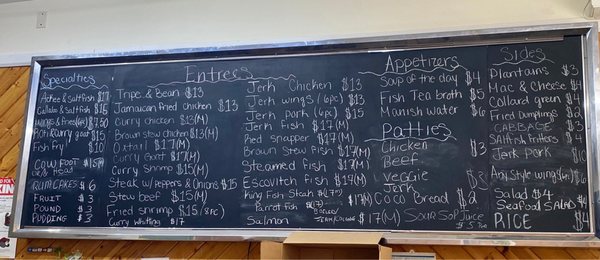 Specialties
Ackee & Saltfish $17
Callaloo & Saltfish $15
wings & fries(6pc) $7.30
Roti Curry goat $15
Fish fry! $10
COW FOOT $15 M
Head
RUM CAKES $6
FRUIT $3
POUND $3
PUDDING $3
Entrees
Tripe & Bean $13
Jamaican fried chicken $13
Curry chicken $13(M)
Brown stew chicken $13(M)
Oxtail $17(M)
Curry Goat $17(M)
Curry Shrimp $15(M)
Steak w/peppers & Onions $15
Stew beef $15(M)
Fried shrimp $15 (8pc)
Curry whiting $17
Jerk Chicken $13
Jerk wings (6pc) $13
Jerk Pork (6pc) $15
Jerk Fish $17(M)
Red snapper $17(M)
Brown Stew Fish $17(M)
Steamed Fish $17(M)
Escovitch Fish $17(M)
King Fish Steak $17(M)
Parrot Fish
Salmon $17(M)
Appetizers
Soup of the day $4
Fish Tea broth $5
Manish water $6
Patties
Chicken $3
Beef
veggie $3
Jerk
Coco Bread $2
Sour Sop Juice
$5.
Sides
Plantains $3
Mac & Cheese $4
Collard green $4
Fried Dumplings $2
CABBAGE $3
Saltfish fritters $3
Jerk Pork $10
Any Style wings(6pc) $6
Salad $4
Seafood SALAD $4
RICE $4